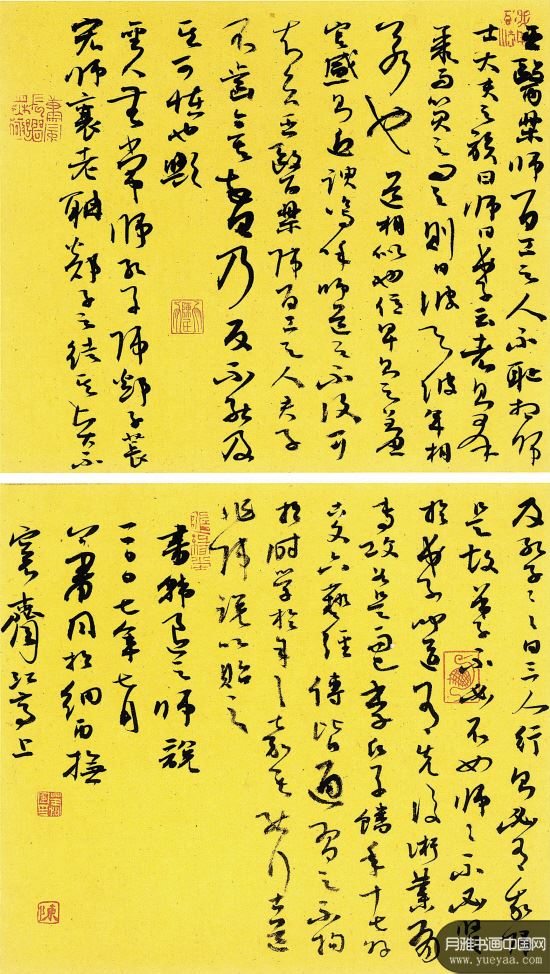 巫醫樂師百工之人不恥相師
士大夫之族曰師曰弟子云者則羣
聚而笑之問之則曰彼與彼年相
若也道相似也位卑則足羞
官盛則近諛嗚呼師道之不復可
知矣巫醫樂師百工之人君子
不齒今其智乃反不能及
其可怪也歟
聖人無常師孔子師郯子萇
宏師襄老聃郯子之徒其賢不
及孔子々々曰三人行則必有我師
是故弟子不必不如師々不必賢
於弟子聞道有先後術業有
專攻如是而已李氏子蟠年十七好
古文六藝經傳皆通習之不拘
於時學於余々嘉其能行古道
作師說以貽之
書韓退之師說
二〇〇七年七月
齋
月雅书画中国网
www.yueyaa.com